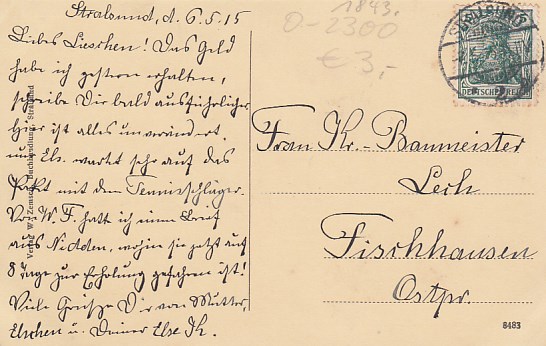 Stralsund, d. 6.5.15
1843.
0-2300
€ 3,-
Liebes Lieschen! Das Geld
habe ich gestern erhalten,
schreibe Dir bald ausführlicher
Hier ist alles unverändert
nur Els. wartet sehr auf das
Paket mit dem Tennisschläger.
Von W. F. hatt ich einen Brief
aus Nidden, wohin sie jetzt auf
8 Tage zur Erholung gefahren ist!
Viele Grüsze Dir von Mutter,
Elschen u. Deiner Else K.
Frau Kr.-Baumeister
Lech
Fischhausen
Ostpr.
STRALSUND
DEUTSCHES REICH
Verlag W. Zemsch, Buchhandlung, Stralsund
8483